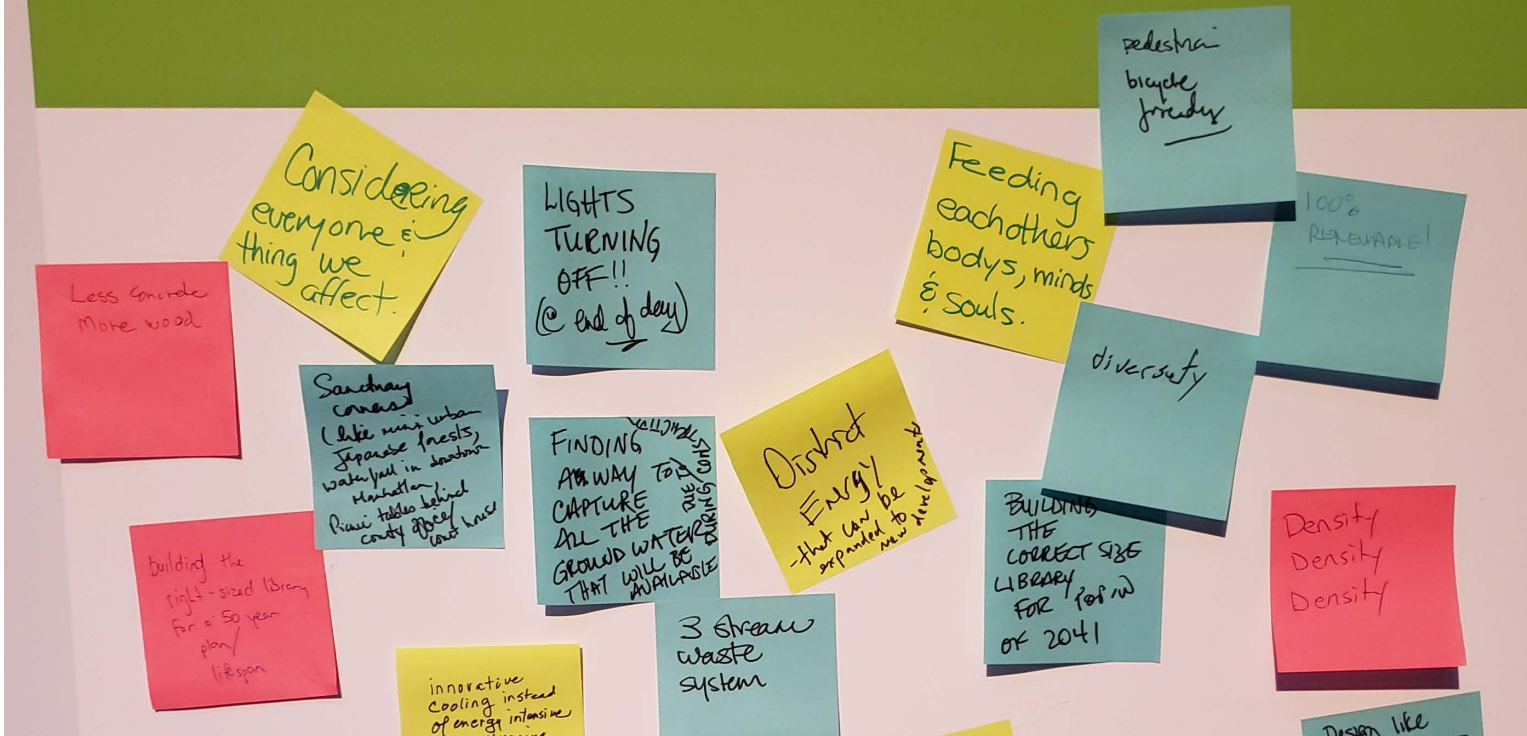 pedestrian
bicycle
friendly
Considering
everyone &
thing we
affect.
LIGHTS
TURNING
OFF!!
(@ end of day)
Feeding
eachothers
bodys, minds
& souls.
100%
RENEWABLE!
Less concrete
More wood
diversity
Sanctuary
corners
(like mini urban
Japanese forests,
waterfall in downtown
Manhattan,
Picnic tables behind
county office/
court house
FINDING
A WAY TO
CAPTURE
ALL THE
GROUND WATER
THAT WILL BE
AVAILABLE
DURING CONSTRUCTION
District
Energy
- that can be
expanded to
new developments
BUILDING
THE
CORRECT SIZE
LIBRARY
FOR POP'N
OF 2041
Density
Density
Density
building the
right-sized library
for a 50 year
plan/
lifespan
3 stream
waste
system
innovative
cooling instead
of energy intensive
Design like